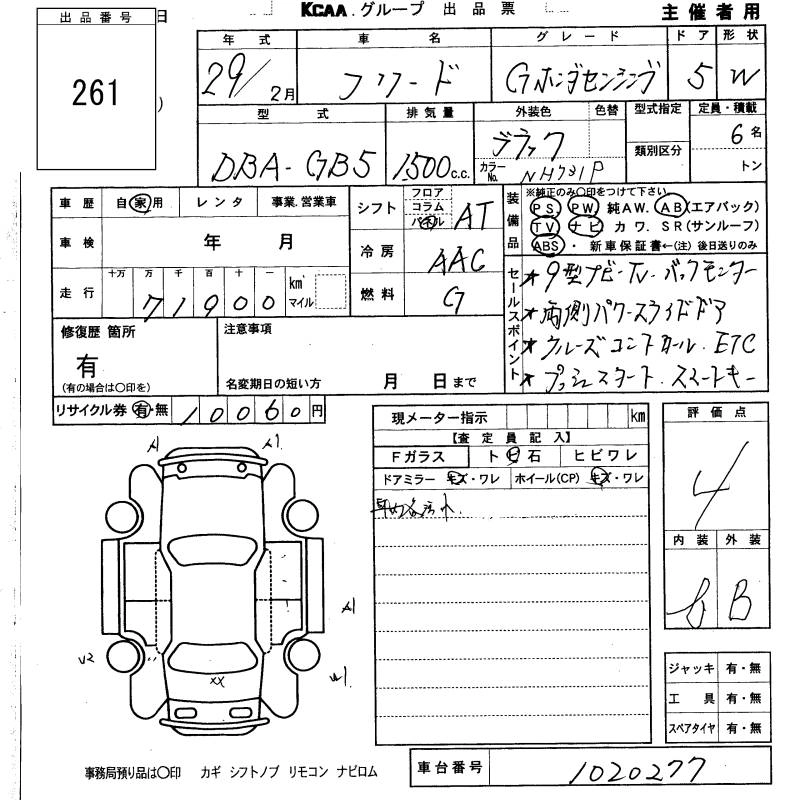 出品番号
261
日
)
KCAA.グループ 出品票
主催者用
年式 車名 グレード ドア 形状
29/2月 フリード Gホンダセンシング 5 W
型式 排気量 外装色 色替 型式指定 定員・積載
類別区分
DBA-GB5 1500c.c. ブラック
カラーNo. NH731P
6名
トン
車歴 自家用 レンタ 事業.営業車
車検 年 月
走行 十万 万 千 百 十 一 km マイル
71900
シフト フロア コラム パネル AT
冷房 AAC
燃料 G
装備品
※純正のみ〇印をつけて下さい
PS PW 純AW. AB(エアバック)
TV ナビ カワ. SR(サンルーフ)
ABS ・ 新車保証書←(注) 後日送りのみ
セールスポイント
★9型ナビ・TV・バックモニター
★両側パワースライドドア
★クルーズコントロール. ETC
★プッシュスタート. スマートキー
修復歴 箇所
有
(有の場合は〇印を)
注意事項
名変期日の短い方 月 日まで
リサイクル券 有・無 10060円
現メーター指示 km
【査定員記入】
Fガラス トビ石 ヒビワレ
ドアミラー キズ・ワレ ホイール(CP) キズ・ワレ
評価点
4
内装 外装
b B
A1 A1
A1
V2
W1
XX
ジャッキ 有・無
工具 有・無
スペアタイヤ 有・無
事務局預り品は〇印 カギ シフトノブ リモコン ナビロム
車台番号 1020277